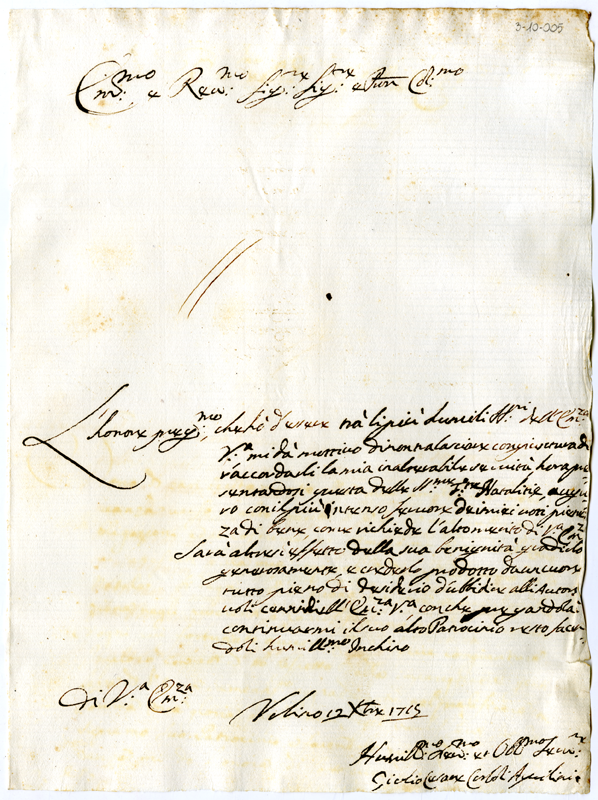 3-10-005
Em.mo e Rev.mo Sig.re Sig.re e Pron Col.mo
L'honore preg.mo, che hò d'essere trà li più humili S.ri dell'Em.za
V.a mi dà mottivo di non tralasciare congiuntura di
raccordarli la mia inalterabile servitù, hora pre
sentandosi questa delle S.me F.te Natalitie, auguro
ro con il più intenso fervore de miei voti pienez
za di bene, come richiede l'alto merito di V.a Em.za
Sarà altresì effetto della sua benignità gradirlo
generosamente, e crederlo prodotto da un cuore
tutto pieno di desiderio d'ubbidire alli Autore
voli cenni dell'Em.za V.a con che pregandola à
continuarmi il suo alto Patrocinio resto facen
doli humill.mo Inchino
Di V.a Em.za
Urbino 12 Xbre 1715
Humill.mo Dev.mo et Obb.mo Serv.re
Giulio Cesare